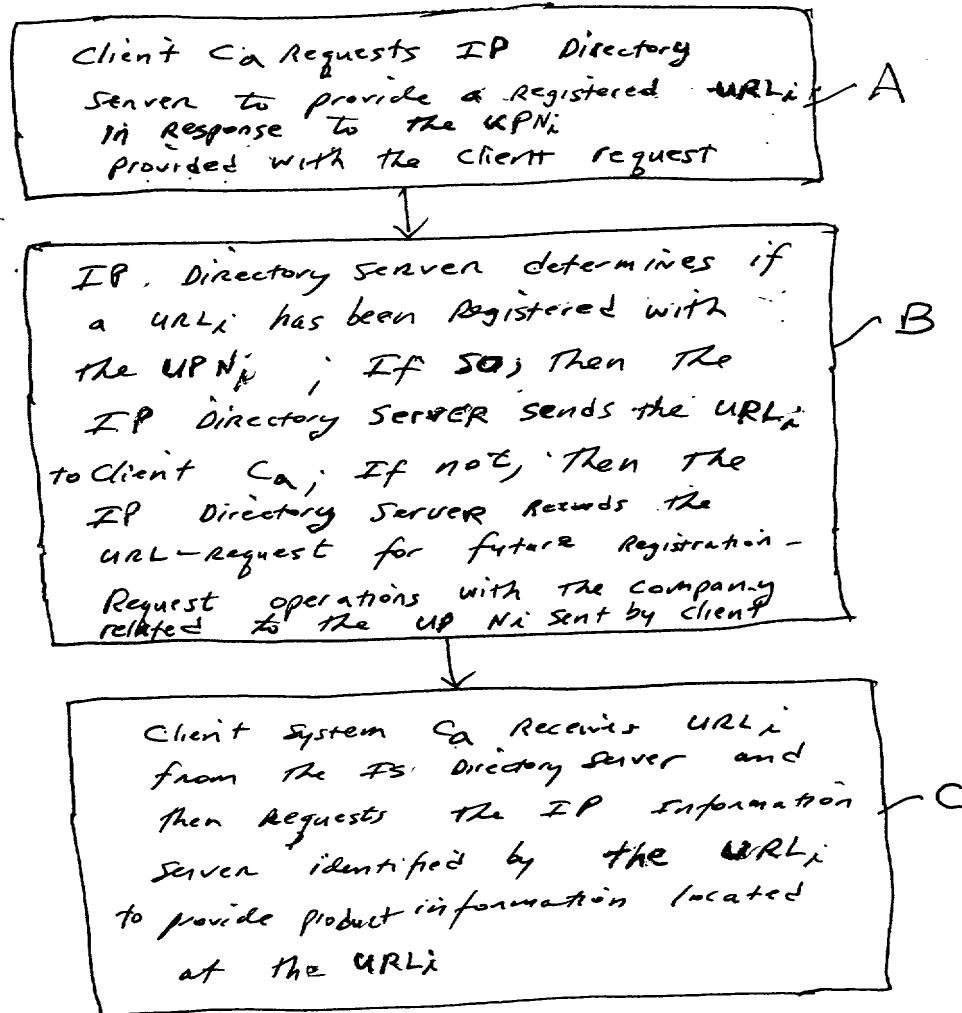 Client Ca Requests IP Directory
Server to provide a Registered URLi
in Response to the UPNi
provided with the client request
A
IP Directory Server determines if
a URLi has been Registered with
the UPNi ; If so; Then the
IP Directory Server sends the URLi
to Client Ca; If not, Then the
IP Directory Server Records the
URL-Request for future Registration-
Request operations with the company
related to the UPNi sent by client
B
Client System Ca Receives URLi
from the IS Directory Server and
then Requests the IP Information
Server identified by the URLi
to provide product information located
at the URLi
C